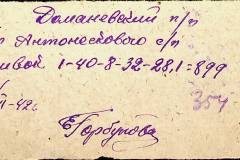 Доманевский п/п
Антонескового с/п
ивой 1-40-8-32-28,1=899
354
-42г.
Горбунова